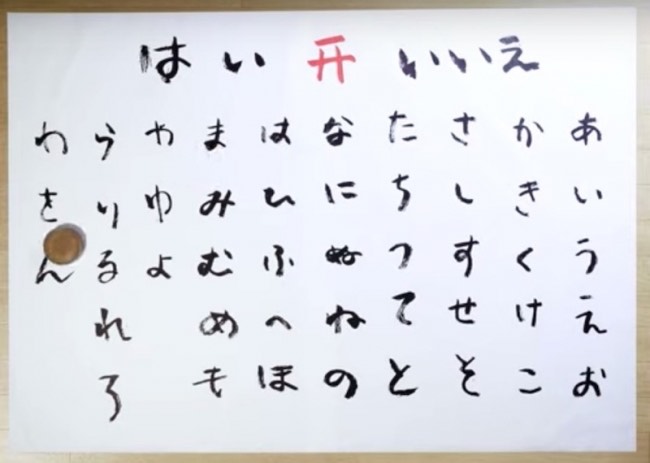 はい いいえ
あいうえお
かきくけこ
さしすせそ
たちつてと
なにぬねの
はひふへほ
まみむめも
やゆよ
らりるれろ
わをん